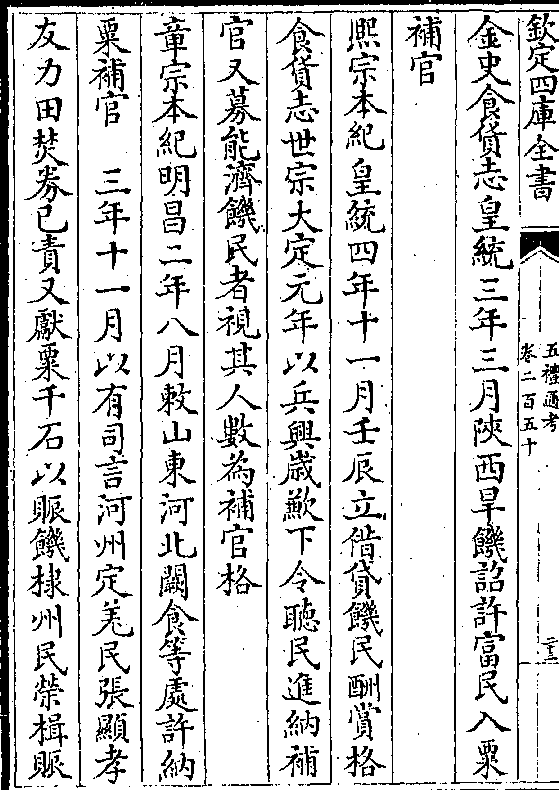 欽定四庫全書
五禮通考
卷二百五十
二十三
金史食貨志皇統三年三月陜西旱饑詔許富民入粟
補官
熙宗本紀皇統四年十一月壬辰立借貸饑民酬賞格
食貨志世宗大定元年以兵興歲歉下令聽民進納補
官又募能濟饑民者視其人數為補官格
章宗本紀明昌二年八月敕山東河北闕食等處許納
粟補官　三年十一月以有司言河州定羌民張顯孝
友力田焚券已責又獻粟千石以賑饑棣州民榮楫賑